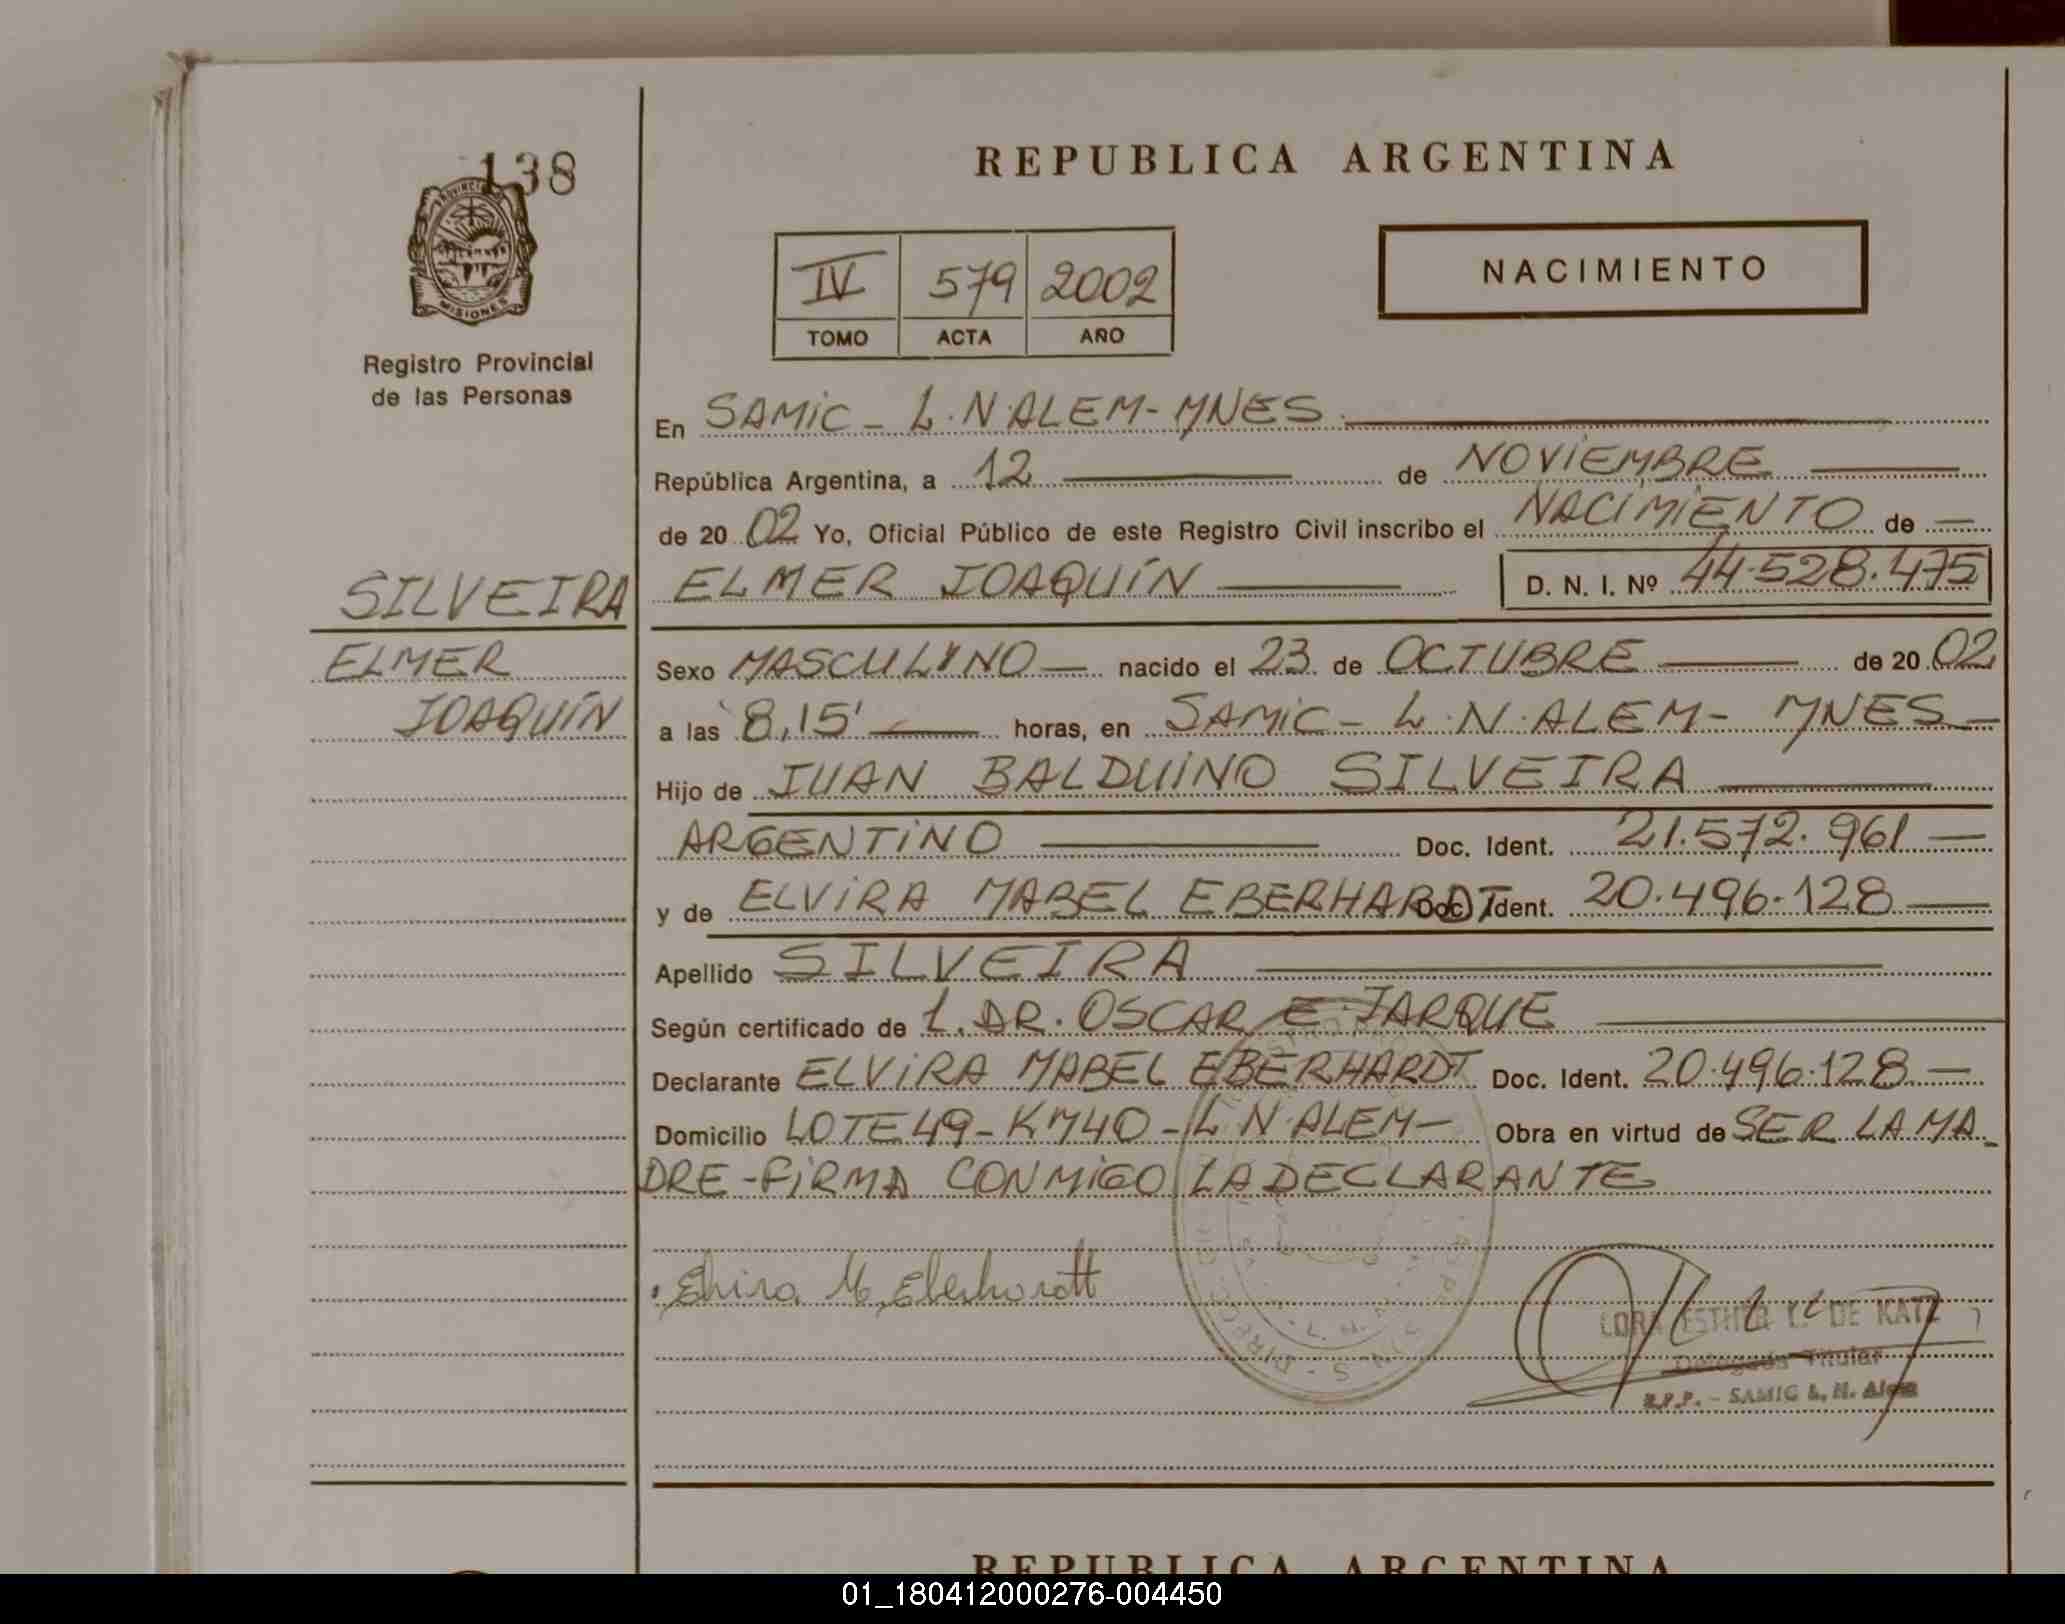 138
PROVINCIA
MISIONES
Registro Provincial
de las Personas
SILVEIRA
ELMER
JOAQUÍN
REPUBLICA ARGENTINA
IV 579 2002
TOMO ACTA AÑO
NACIMIENTO
En SAMIC - L.N.ALEM - MNES
República Argentina, a 12 de NOVIEMBRE
de 20 02 Yo, Oficial Público de este Registro Civil inscribo el NACIMIENTO de
ELMER JOAQUÍN D. N. I. Nº 44.528.475
Sexo MASCULINO nacido el 23 de OCTUBRE de 20 02
a las 8,15' horas, en SAMIC - L.N.ALEM - MNES
Hijo de JUAN BALDUINO SILVEIRA
ARGENTINO Doc. Ident. 21.572.961
y de ELVIRA MABEL EBERHARDT Doc. Ident. 20.496.128
Apellido SILVEIRA
Según certificado de 1. DR. OSCAR E. JARQUE
Declarante ELVIRA MABEL EBERHARDT Doc. Ident. 20.496.128
Domicilio LOTE 49 - KM40 - L.N.ALEM - Obra en virtud de SER LA MA-
DRE - FIRMA CONMIGO LA DECLARANTE
Elvira M. Eberhardt
LORA ESTHER L. DE KATZ
Delegada Titular
R.P.P. - SAMIC L. N. Alem
REPUBLICA ARGENTINA
01_180412000276-004450